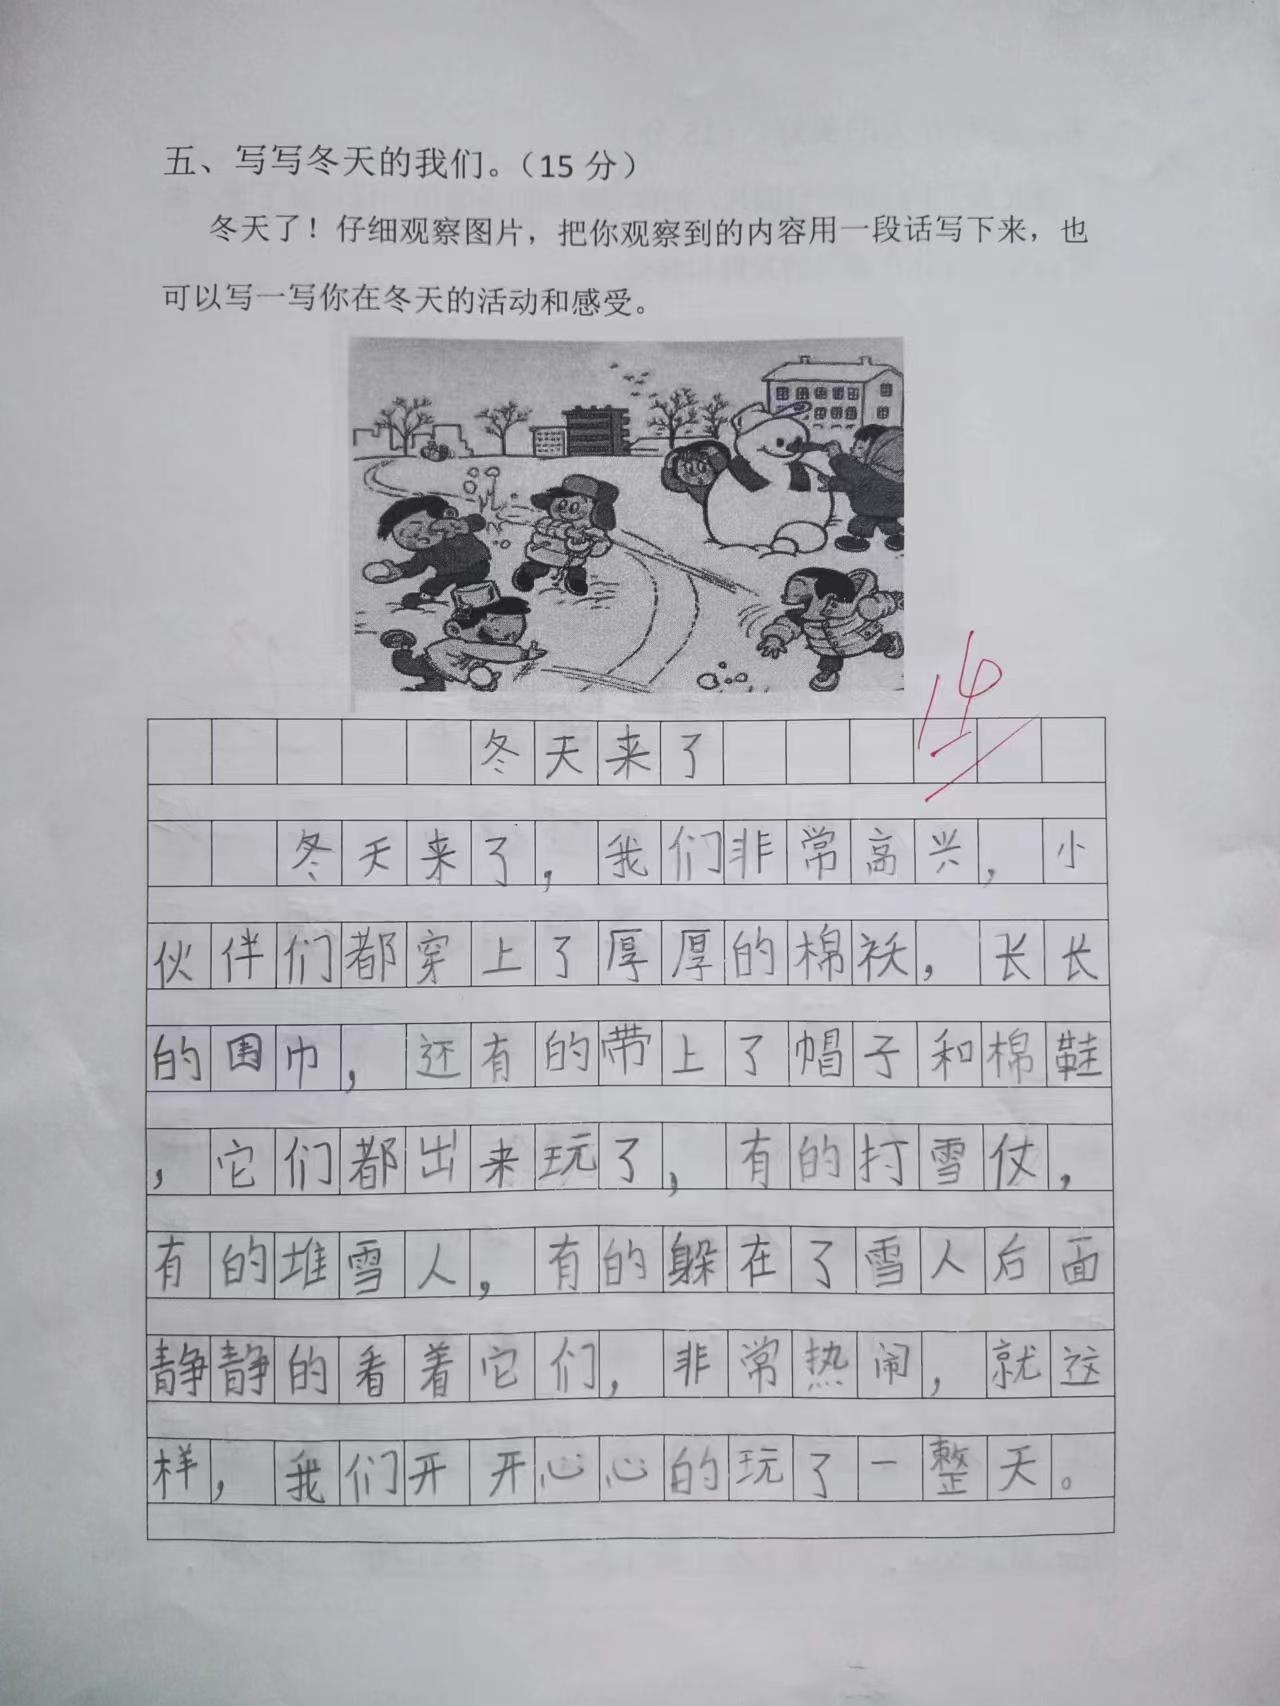 五、写写冬天的我们。（15 分）
冬天了！仔细观察图片，把你观察到的内容用一段话写下来，也
可以写一写你在冬天的活动和感受。
14
冬天来了
冬天来了，我们非常高兴，小
伙伴们都穿上了厚厚的棉袄，长长
的围巾，还有的带上了帽子和棉鞋
，它们都出来玩了，有的打雪仗，
有的堆雪人，有的躲在了雪人后面
静静的看着它们，非常热闹，就这
样，我们开开心心的玩了一整天。